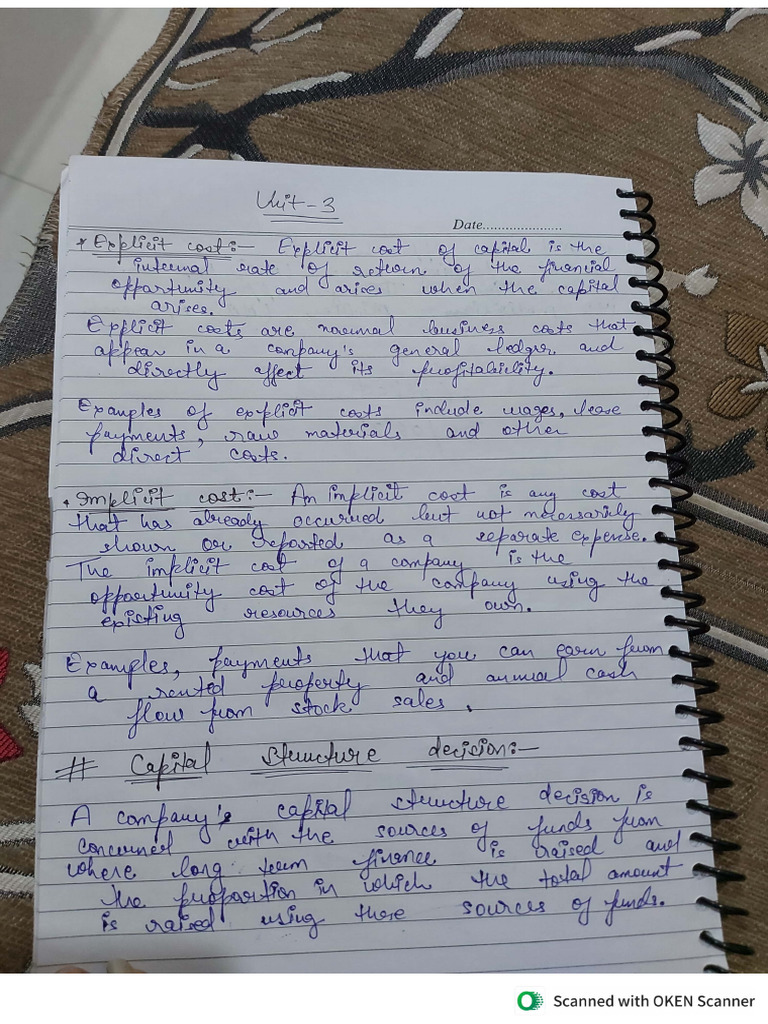 Unit - 3
Date.....................
* Explicit cost:- Explicit cost of capital is the
internal rate of return of the financial
opportunity and arises when the capital
arises.
Explicit costs are normal business costs that
appear in a company's general ledger and
directly affect its profitability.
Examples of explicit costs include wages, lease
payments, raw materials and other
direct costs.
• Implicit cost:- An implicit cost is any cost
that has already occurred but not necessarily
shown or reported as a separate expense.
The implicit cost of a company is the
opportunity cost of the company using the
existing resources they own.
Examples, payments that you can earn from
a rented property and annual cash
flow from stock sales.
# Capital Structure decision:-
A company's capital structure decision is
concerned with the sources of funds from
where long term finance is raised and
the proportion in which the total amount
is raised using these sources of funds.
Scanned with OKEN Scanner